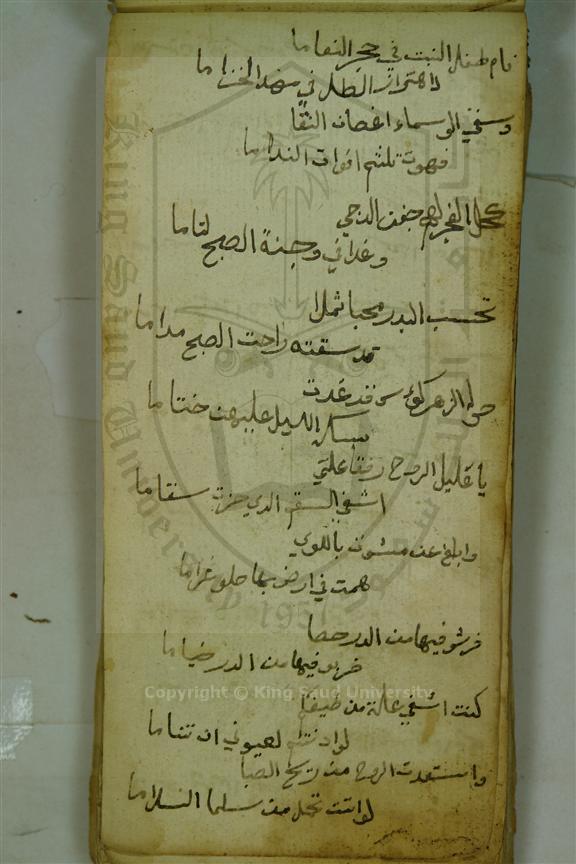 نام طفل النبت في حجر النعاما
لاهتزاز الطل في مهد الخزاما
وسقي الوسماء اغصان النقا
فهوت تلثم افواه النداما
كحل الفجر لهم جفن الدجي
وغدا في وجنة الصبح لثاما
تحسب البدر محيا ثملا
قد سقته راحت الصبح مداما
حول الزهر كؤس قد غدت
مسكة الليل عليهن ختاما
يا عليل الروح رفقا علي
اشفي السقم الذي حزت سقاما
وابلغا عن باللوي
همت في ارض بها حلو غراما
فرشو فيها من الدر حصا
ضربو فيها من الدر خياما
كنت اشفي غلة من طيفكم
لو اذنتم لعيوني ان تناما
واستعدت الروح من ريح الصبا
لو اتت تحمل من سلما السلاما
Copyright © King Saud University
1957